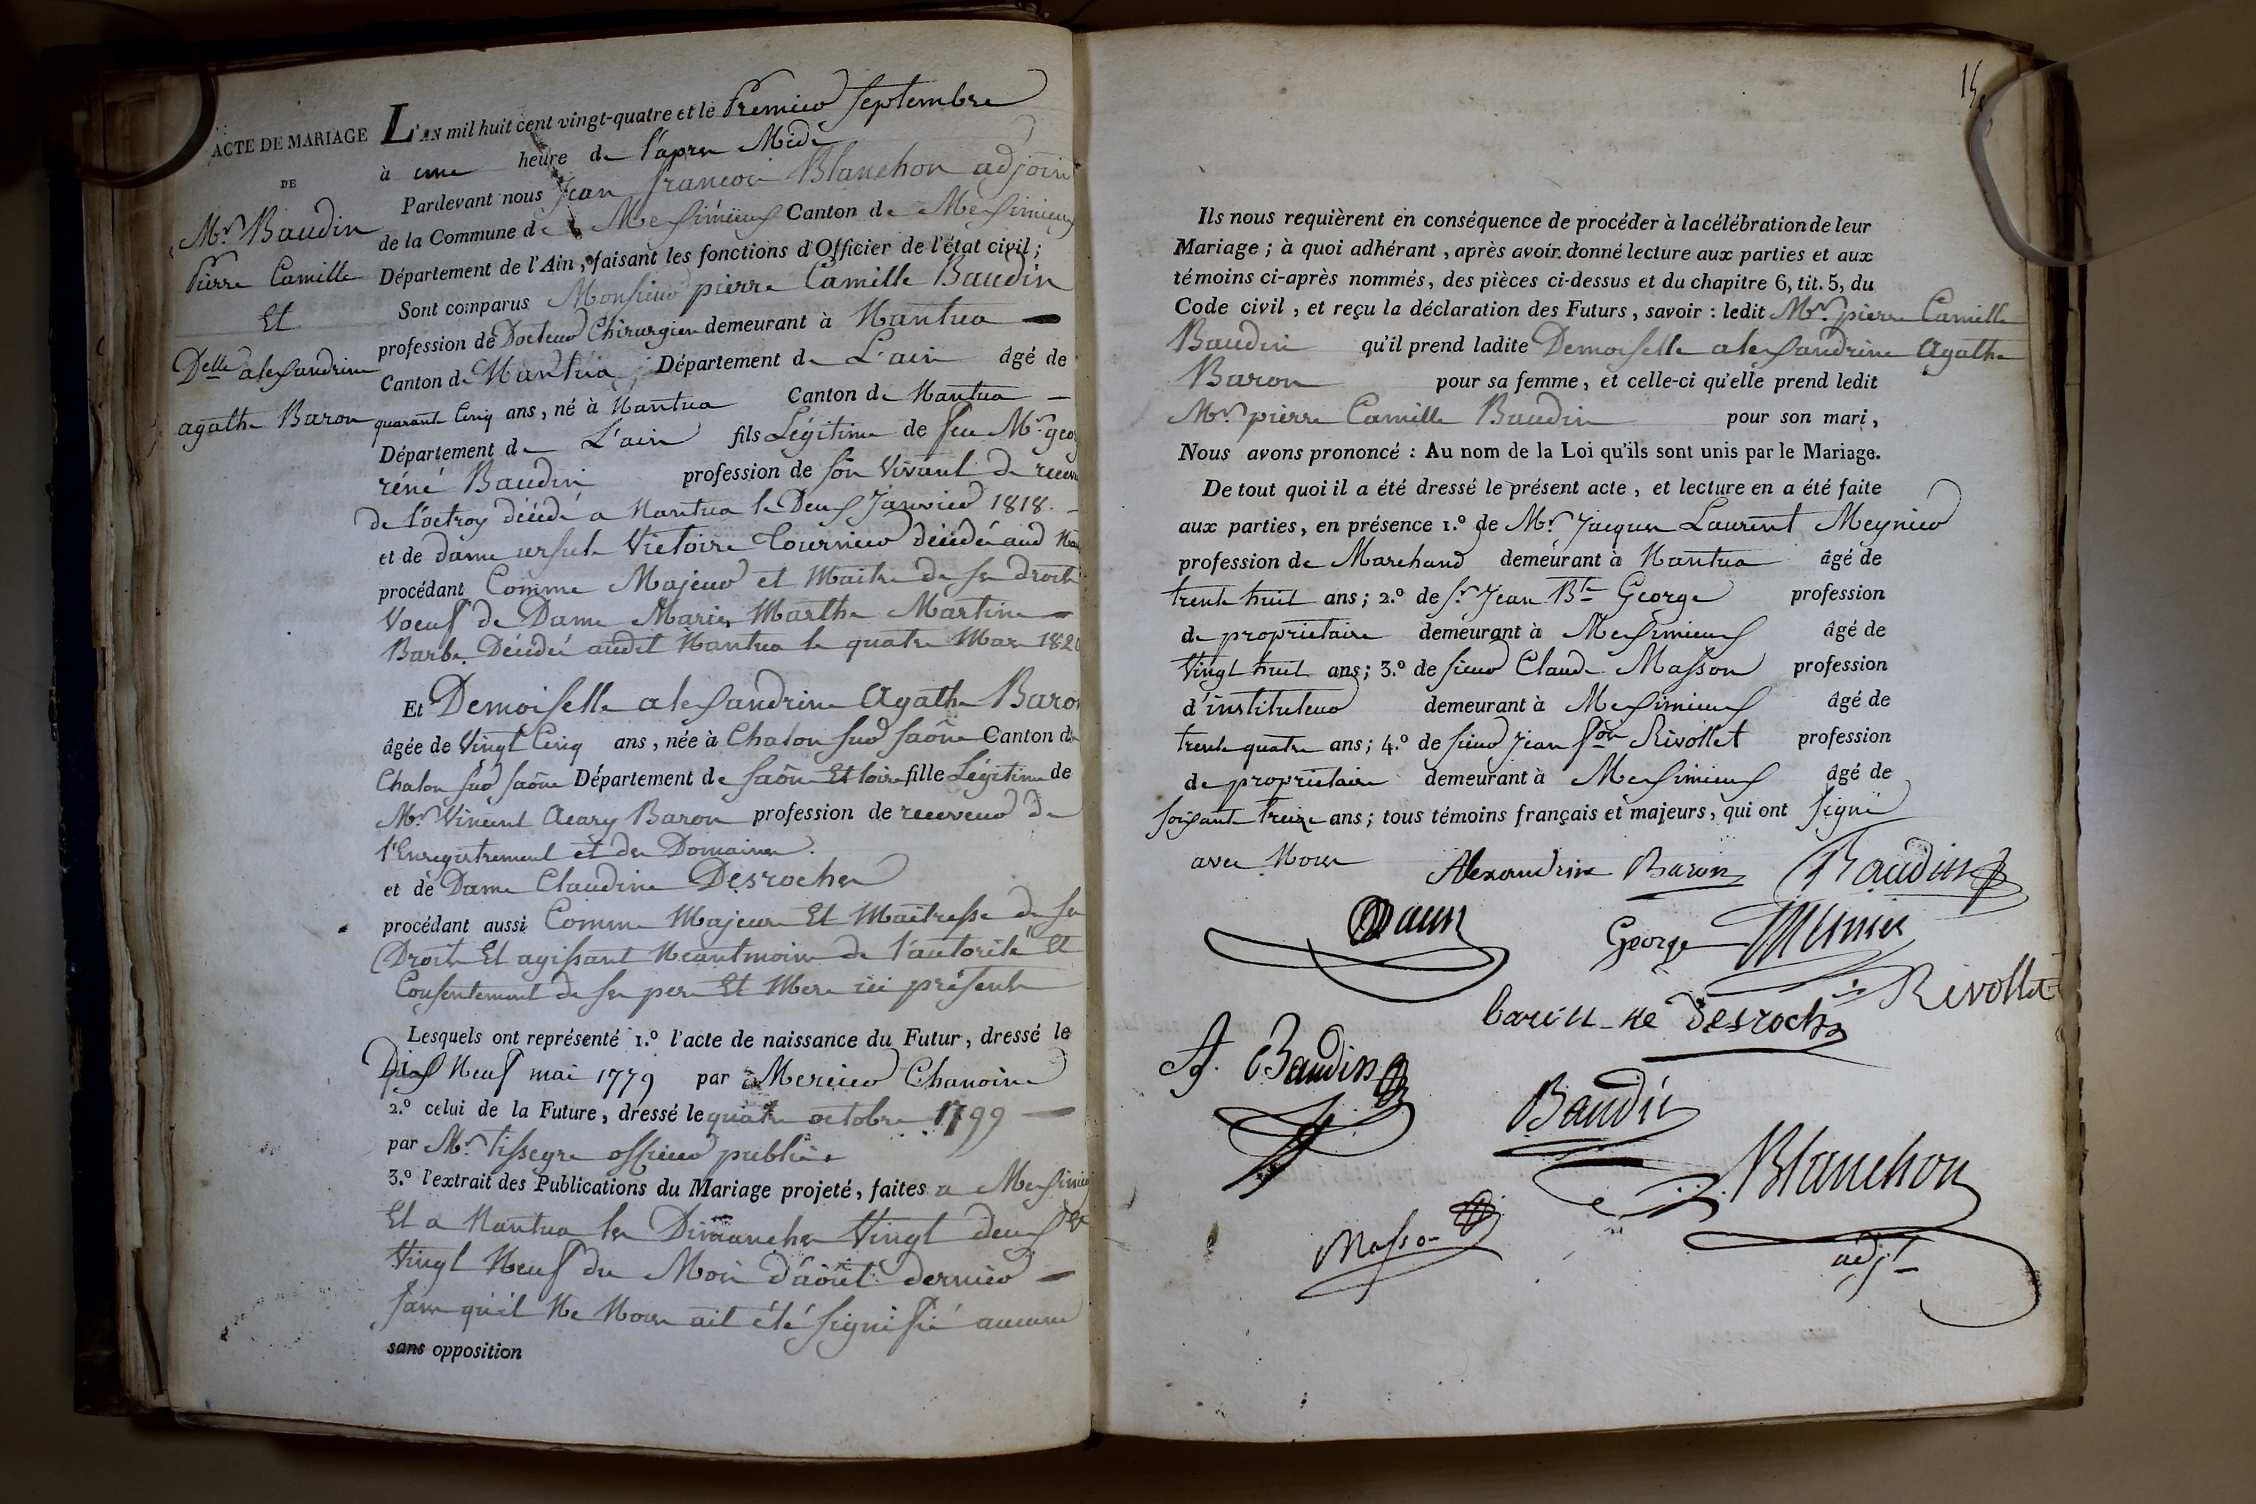 ACTE DE MARIAGE
DE
Mr. Baudin
Pierre Camille
Et
Delle alexandrine
agathe Baron
L'AN mil huit cent vingt-quatre et le Premier Septembre
à une heure de l'apres Midi
Pardevant nous Jean françois Blanchon adjoint
de la Commune de Meximieux Canton de Meximieux
Département de l'Ain, faisant les fonctions d'Officier de l'état civil;
Sont comparus Monsieur pierre Camille Baudin
profession de Docteur Chirurgien demeurant à Nantua
Canton de Nantua, Département de L'ain âgé de
quarante Cinq ans, né à Nantua Canton de Nantua
Département de L'ain fils Légitime de feu Mr. geor
réné Baudin profession de son vivant de receve
de l'octroy décédé a Nantua le Deux Janvier 1818.
et de dame ursule Victoire Tournier décédée aud Nan
procédant Comme Majeur et Maitre de ses droits
Voeuf de Dame Marie Marthe Martine
Barbe Décédée audit Nantua le quatre Mars 182
Et Demoiselle alexandrine Agathe Baron
âgée de Vingt Cinq ans, née à Chalon sur saône Canton de
Chalon sur saône Département de saône Et loire fille Légitime de
Mr. Vincent Acary Baron profession de receveur de
l'Enregistrement et des Domaines.
et de Dame Claudine Desroches
procédant aussi Comme Majeure Et Maitresse de ses
Droits Et agissant Neantmoins de l'autorité Et
Consentement de ses pere Et Mere ici présents
Lesquels ont représenté 1.º l'acte de naissance du Futur, dressé le
Dix Neuf mai 1779 par Mercier Chanoine
2.º celui de la Future, dressé le quatre octobre 1799
par Mr. Tissegre officier public
3.º l'extrait des Publications du Mariage projeté, faites a Meximieu
Et a Nantua les Dimanches Vingt deux &
Vingt Neuf du Mois d'août dernier
sans qu'il Ne Nous ait été signifié aucune
sans opposition
15
Ils nous requièrent en conséquence de procéder à la célébration de leur
Mariage; à quoi adhérant, après avoir donné lecture aux parties et aux
témoins ci-après nommés, des pièces ci-dessus et du chapitre 6, tit. 5, du
Code civil, et reçu la déclaration des Futurs, savoir: ledit Mr. pierre Camille
Baudin qu'il prend ladite Demoiselle alexandrine Agathe
Baron pour sa femme, et celle-ci qu'elle prend ledit
Mr. pierre Camille Baudin pour son mari,
Nous avons prononcé: Au nom de la Loi qu'ils sont unis par le Mariage.
De tout quoi il a été dressé le présent acte, et lecture en a été faite
aux parties, en présence 1.º de Mr. Jacques Laurent Meynier
profession de Marchand demeurant à Nantua âgé de
trente huit ans; 2.º de sr. Jean Bte George profession
de propriétaire demeurant à Meximieux âgé de
Vingt huit ans; 3.º de sieur Claude Masson profession
d'instituteur demeurant à Meximieux âgé de
trente quatre ans; 4.º de sieur Jean fois Rivollet profession
de propriétaire demeurant à Meximieux âgé de
soixante treize ans; tous témoins français et majeurs, qui ont signé
avec Nous Alexandrine Baron Baudin
George
Rivollet
Desroches
A. Baudin
Baudin
Blanchon
adjt
Masson